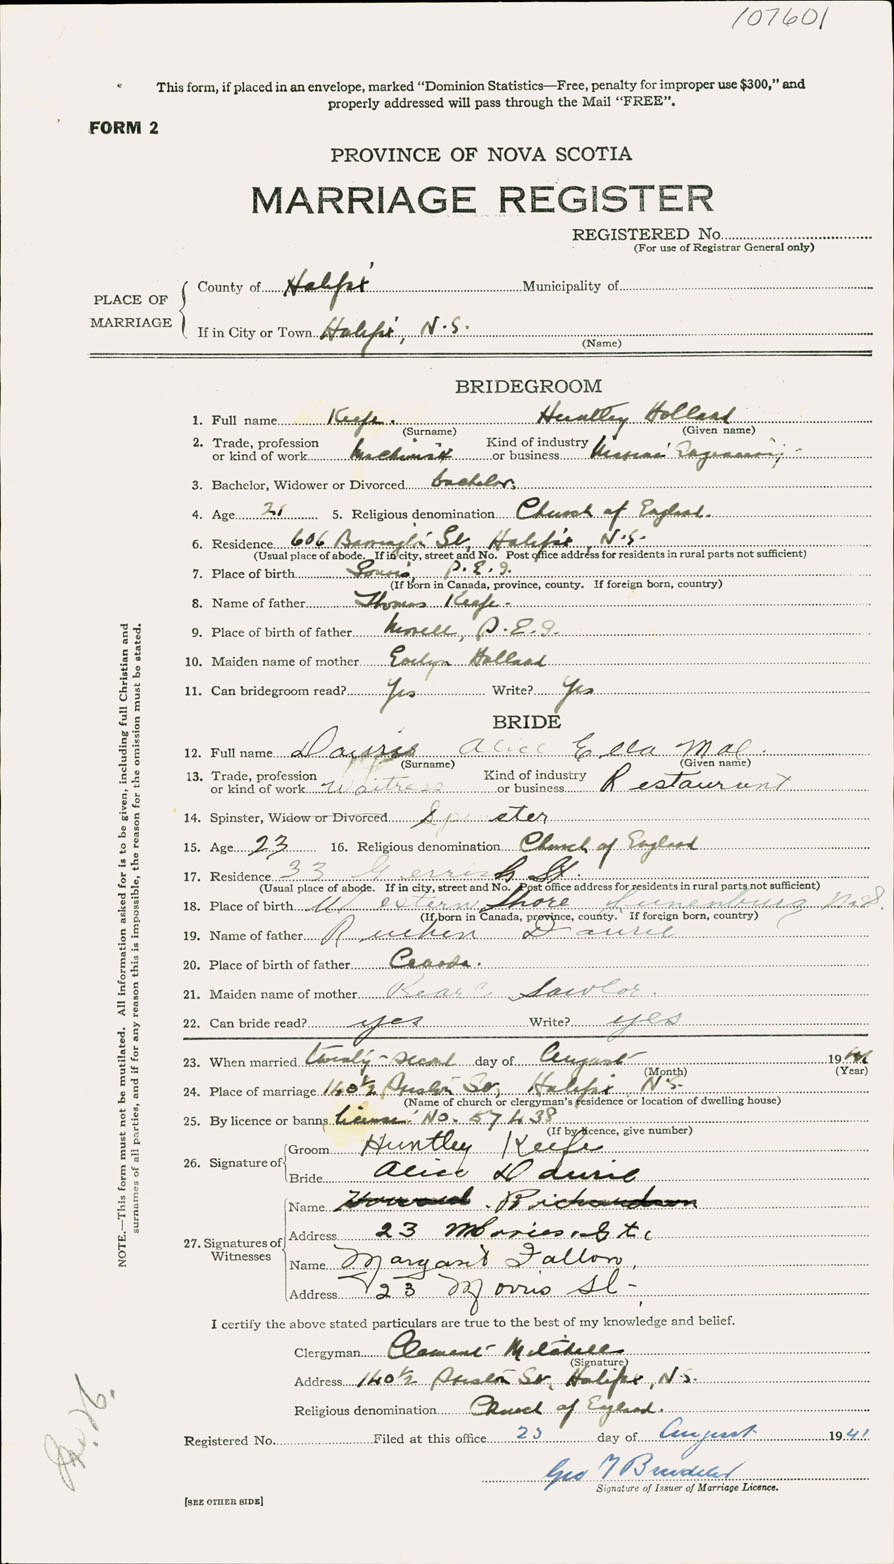 107601
This form, if placed in an envelope, marked "Dominion Statistics—Free, penalty for improper use $300," and
properly addressed will pass through the Mail "FREE".
FORM 2
PROVINCE OF NOVA SCOTIA
MARRIAGE REGISTER
REGISTERED No.
(For use of Registrar General only)
PLACE OF MARRIAGE
County of Halifax Municipality of
If in City or Town Halifax, N.S.
(Name)
BRIDEGROOM
1. Full name Keefe. Huntley Holland
(Surname) (Given name)
2. Trade, profession or kind of work Machinist Kind of industry or business Engineering
3. Bachelor, Widower or Divorced bachelor.
4. Age 21 5. Religious denomination Church of England.
6. Residence 606 Barrington St., Halifax, N.S.
(Usual place of abode. If in city, street and No. Post office address for residents in rural parts not sufficient)
7. Place of birth Souris, P.E.I.
(If born in Canada, province, county. If foreign born, country)
8. Name of father Thomas Keefe.
9. Place of birth of father Morell, P.E.I.
10. Maiden name of mother Evelyn Holland
11. Can bridegroom read? Yes Write? Yes
BRIDE
12. Full name Daurie Alice Ella Mae.
(Surname) (Given name)
13. Trade, profession or kind of work Waitress Kind of industry or business Restaurant
14. Spinster, Widow or Divorced Spinster
15. Age 23 16. Religious denomination Church of England
17. Residence 33 Gerrish St.
(Usual place of abode. If in city, street and No. Post office address for residents in rural parts not sufficient)
18. Place of birth Western Shore Lunenburg N.S.
(If born in Canada, province, county. If foreign born, country)
19. Name of father Ruben Daurie
20. Place of birth of father Canada.
21. Maiden name of mother Sawlor.
22. Can bride read? yes Write? yes
23. When married twenty-second day of August 1941
(Month) (Year)
24. Place of marriage 140½ St., Halifax N.S.
(Name of church or clergyman's residence or location of dwelling house)
25. By licence or banns license No. 57438
(If by licence, give number)
26. Signature of
Groom Huntley Keefe
Bride Alice Daurie
27. Signatures of Witnesses
Name Howard Richardson
Address 23 Morris St.
Name Margaret Fallon,
Address 23 Morris St-
I certify the above stated particulars are true to the best of my knowledge and belief.
Clergyman Clement Mitchell
(Signature)
Address 140½ St., Halifax, N.S.
Religious denomination Church of England.
Registered No. Filed at this office 23 day of August 1941
Geo
Signature of Issuer of Marriage Licence.
[SEE OTHER SIDE]
NOTE.—This form must not be mutilated. All information asked for is to be given, including full Christian and
surnames of all parties, and if for any reason this is impossible, the reason for the omission must be stated.